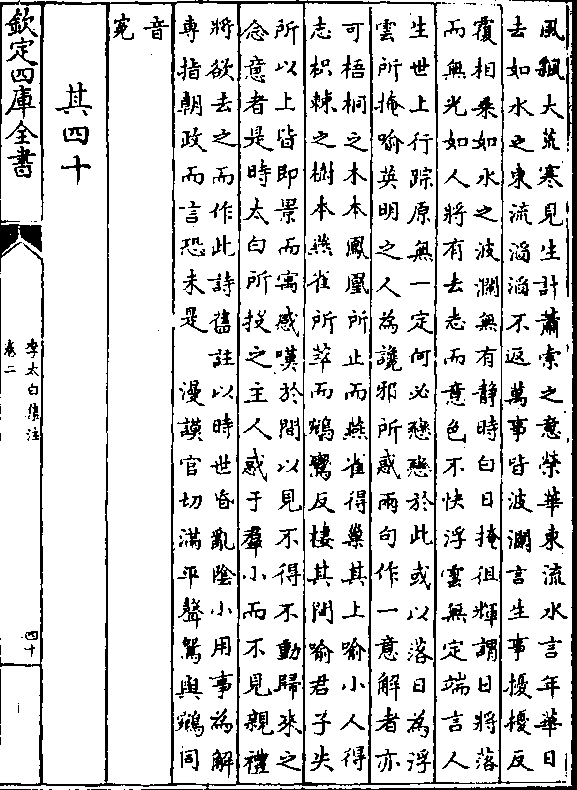 風飄大荒寒見生計蕭索之意榮華東流水言年華日
去如水之東流滔滔不返萬事皆波瀾言生事擾擾反
覆相乗如水之波瀾無有静時白日掩徂輝謂日將落
而無光如人將有去志而意色不快浮雲無定端言人
生世上行踪原無一定何必戀戀於此或以落日為浮
雲所掩喻英明之人為讒邪所惑兩句作一意解者亦
可梧桐之木本鳳凰所止而燕雀得巢其上喻小人得
志枳棘之樹本燕雀所萃而鵷鸞反棲其間喻君子失
所以上皆即景而寓感嘆於間以見不得不動歸來之
念意者是時太白所投之主人惑于羣小而不見親禮
將欲去之而作此詩舊註以時世昏亂陰小用事為解
專指朝政而言恐未是 漫謨官切滿平聲鴛與鵷同
音
寃
其四十
欽定四庫全書
李太白集注
卷二
四十